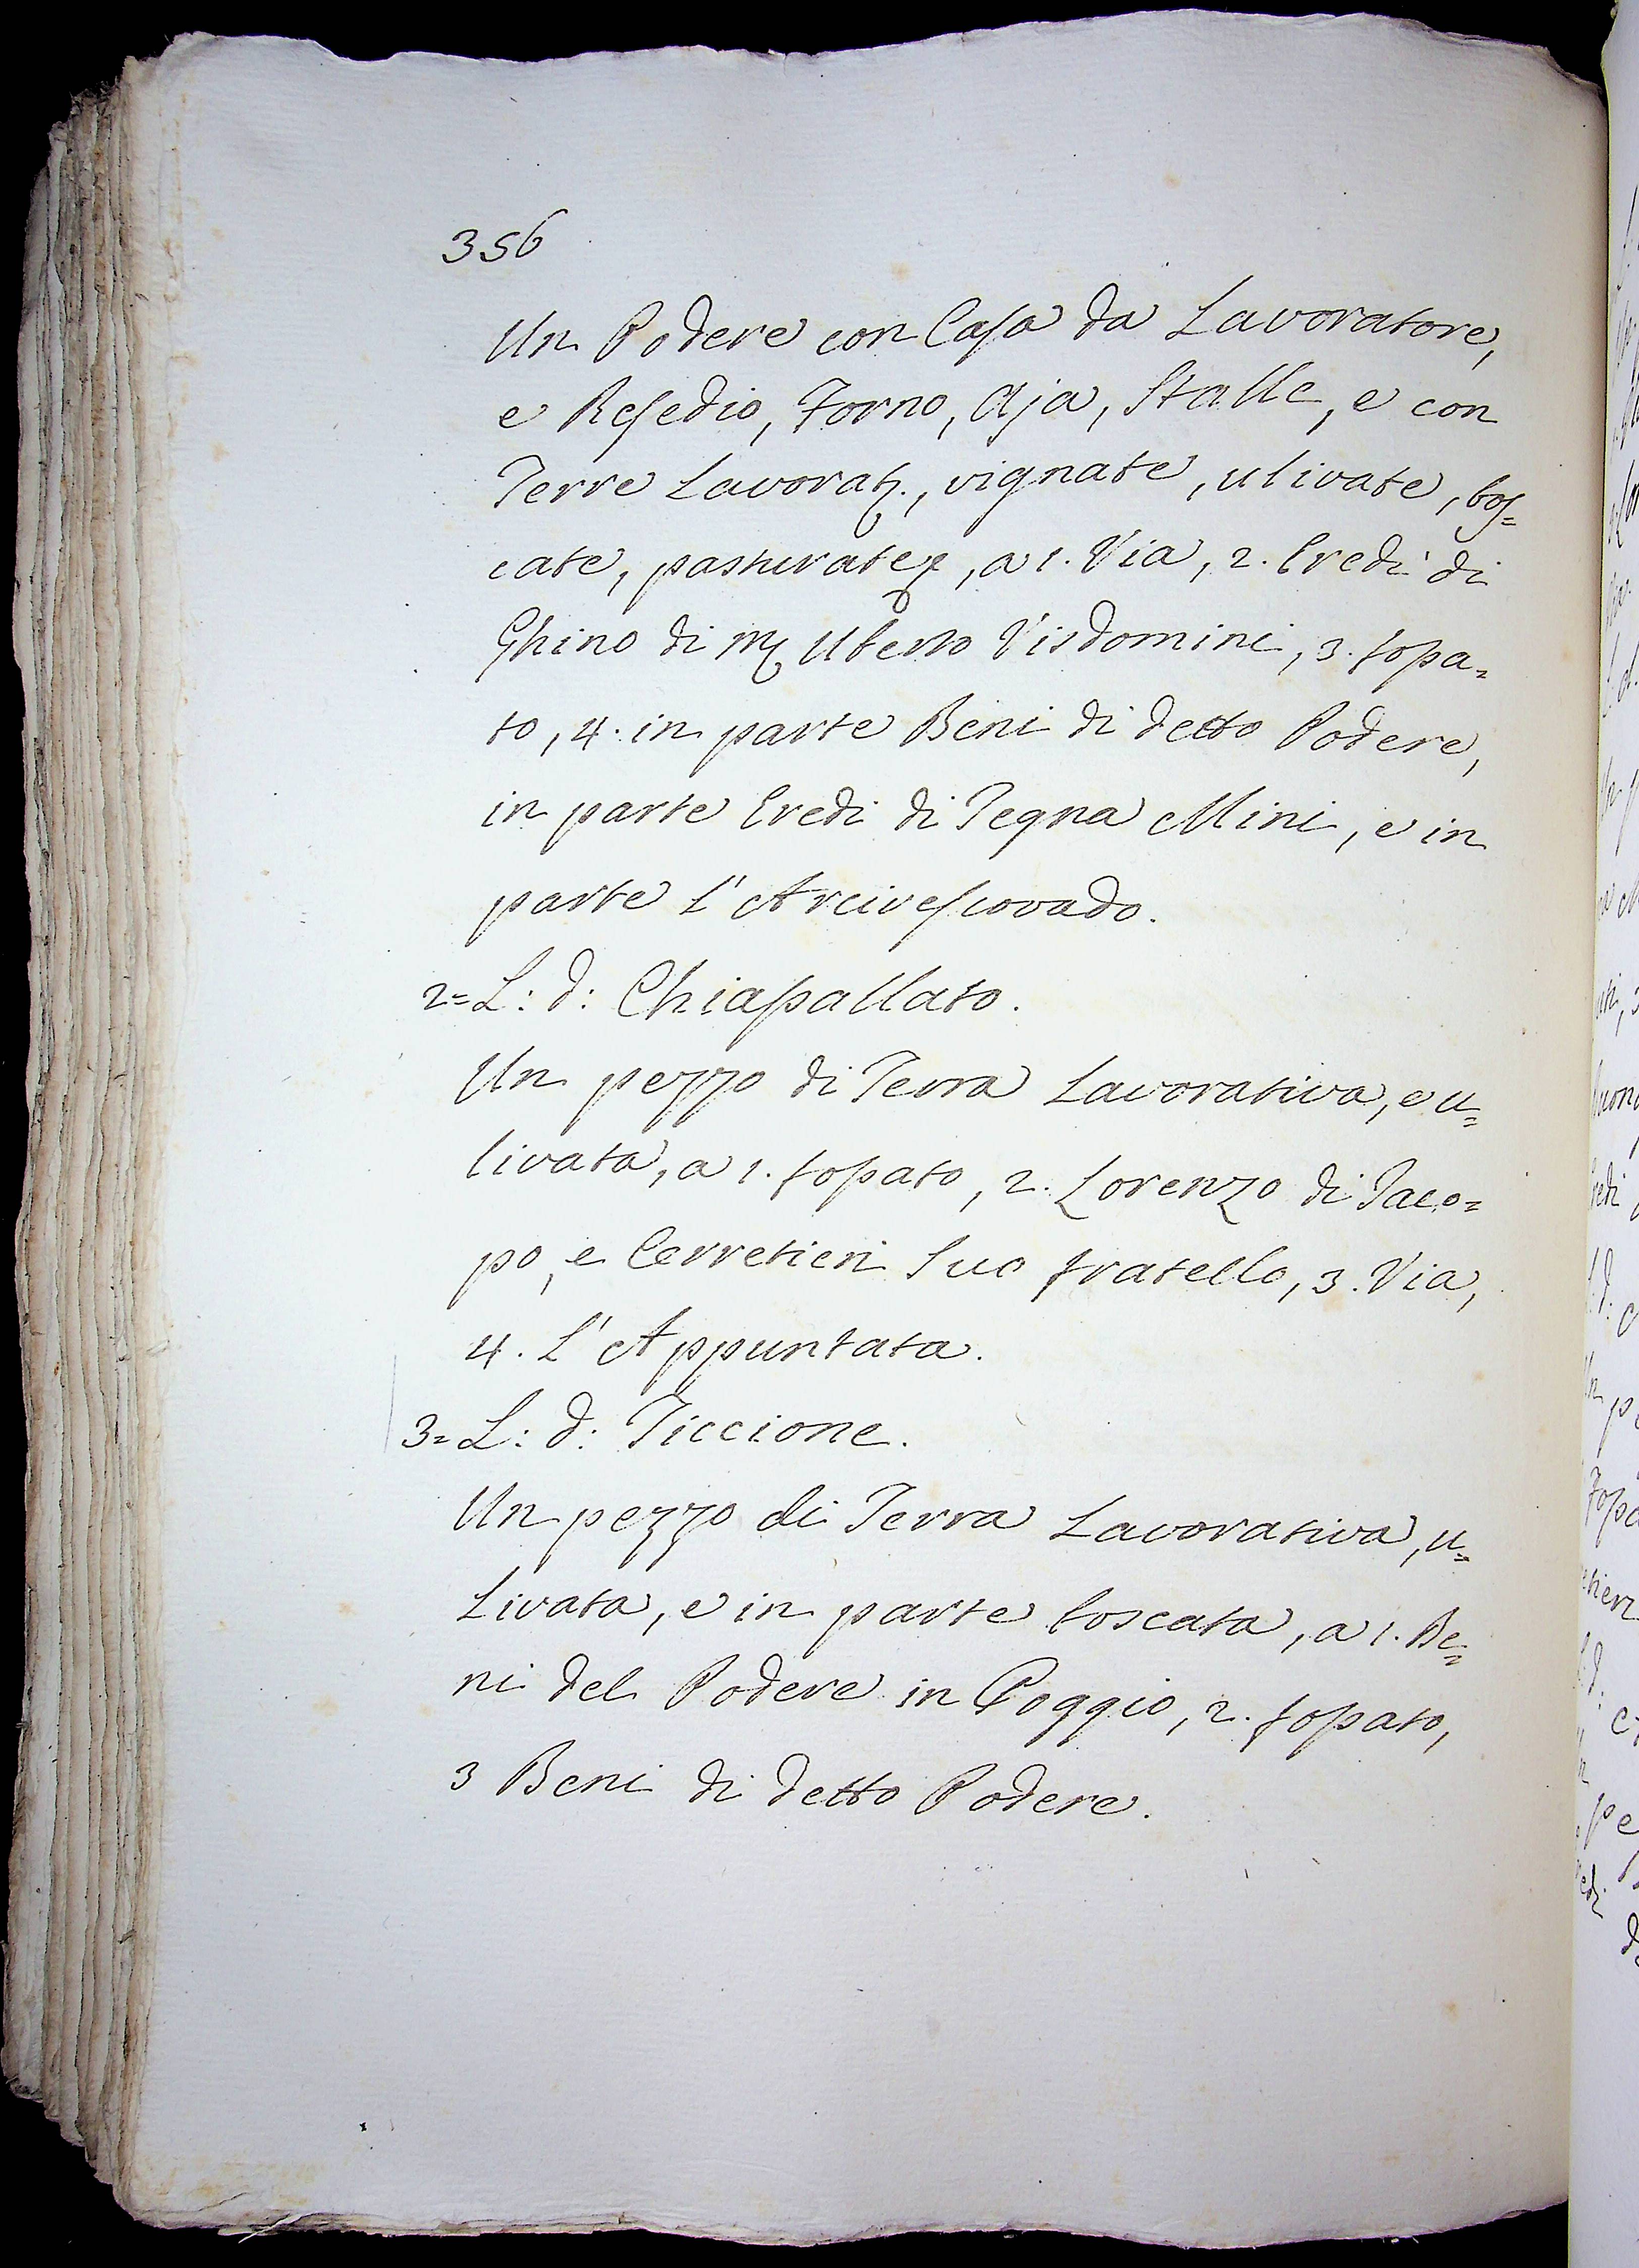 356
Un Podere con Casa da Lavoratore,
e Resedio, Forno, Aja, Stalle, e con
Terre Lavorat., vignate, ulivate, bos=
cate, pasturate, a 1. Via, 2. Eredi di
Ghino di M. Uberto Visdomini, 3. fossa=
to, 4. in parte Beni di detto Podere,
in parte Eredi di Tegna Mini, e in
parte l'Arcivescovado.
2= L: d: Chiassallato.
Un pezzo di Terra Lavorativa, e u=
livata, a 1. fossato, 2. Lorenzo di Jaco=
po, e Cerretieri suo fratello, 3. Via,
4. L'Appuntata.
3= L: d: Ticcione.
Un pezzo di Terra Lavorativa, u=
livata, e in parte boscata, a 1. Be=
ni del Podere in Poggio, 2. fossato,
3 Beni di detto Podere.